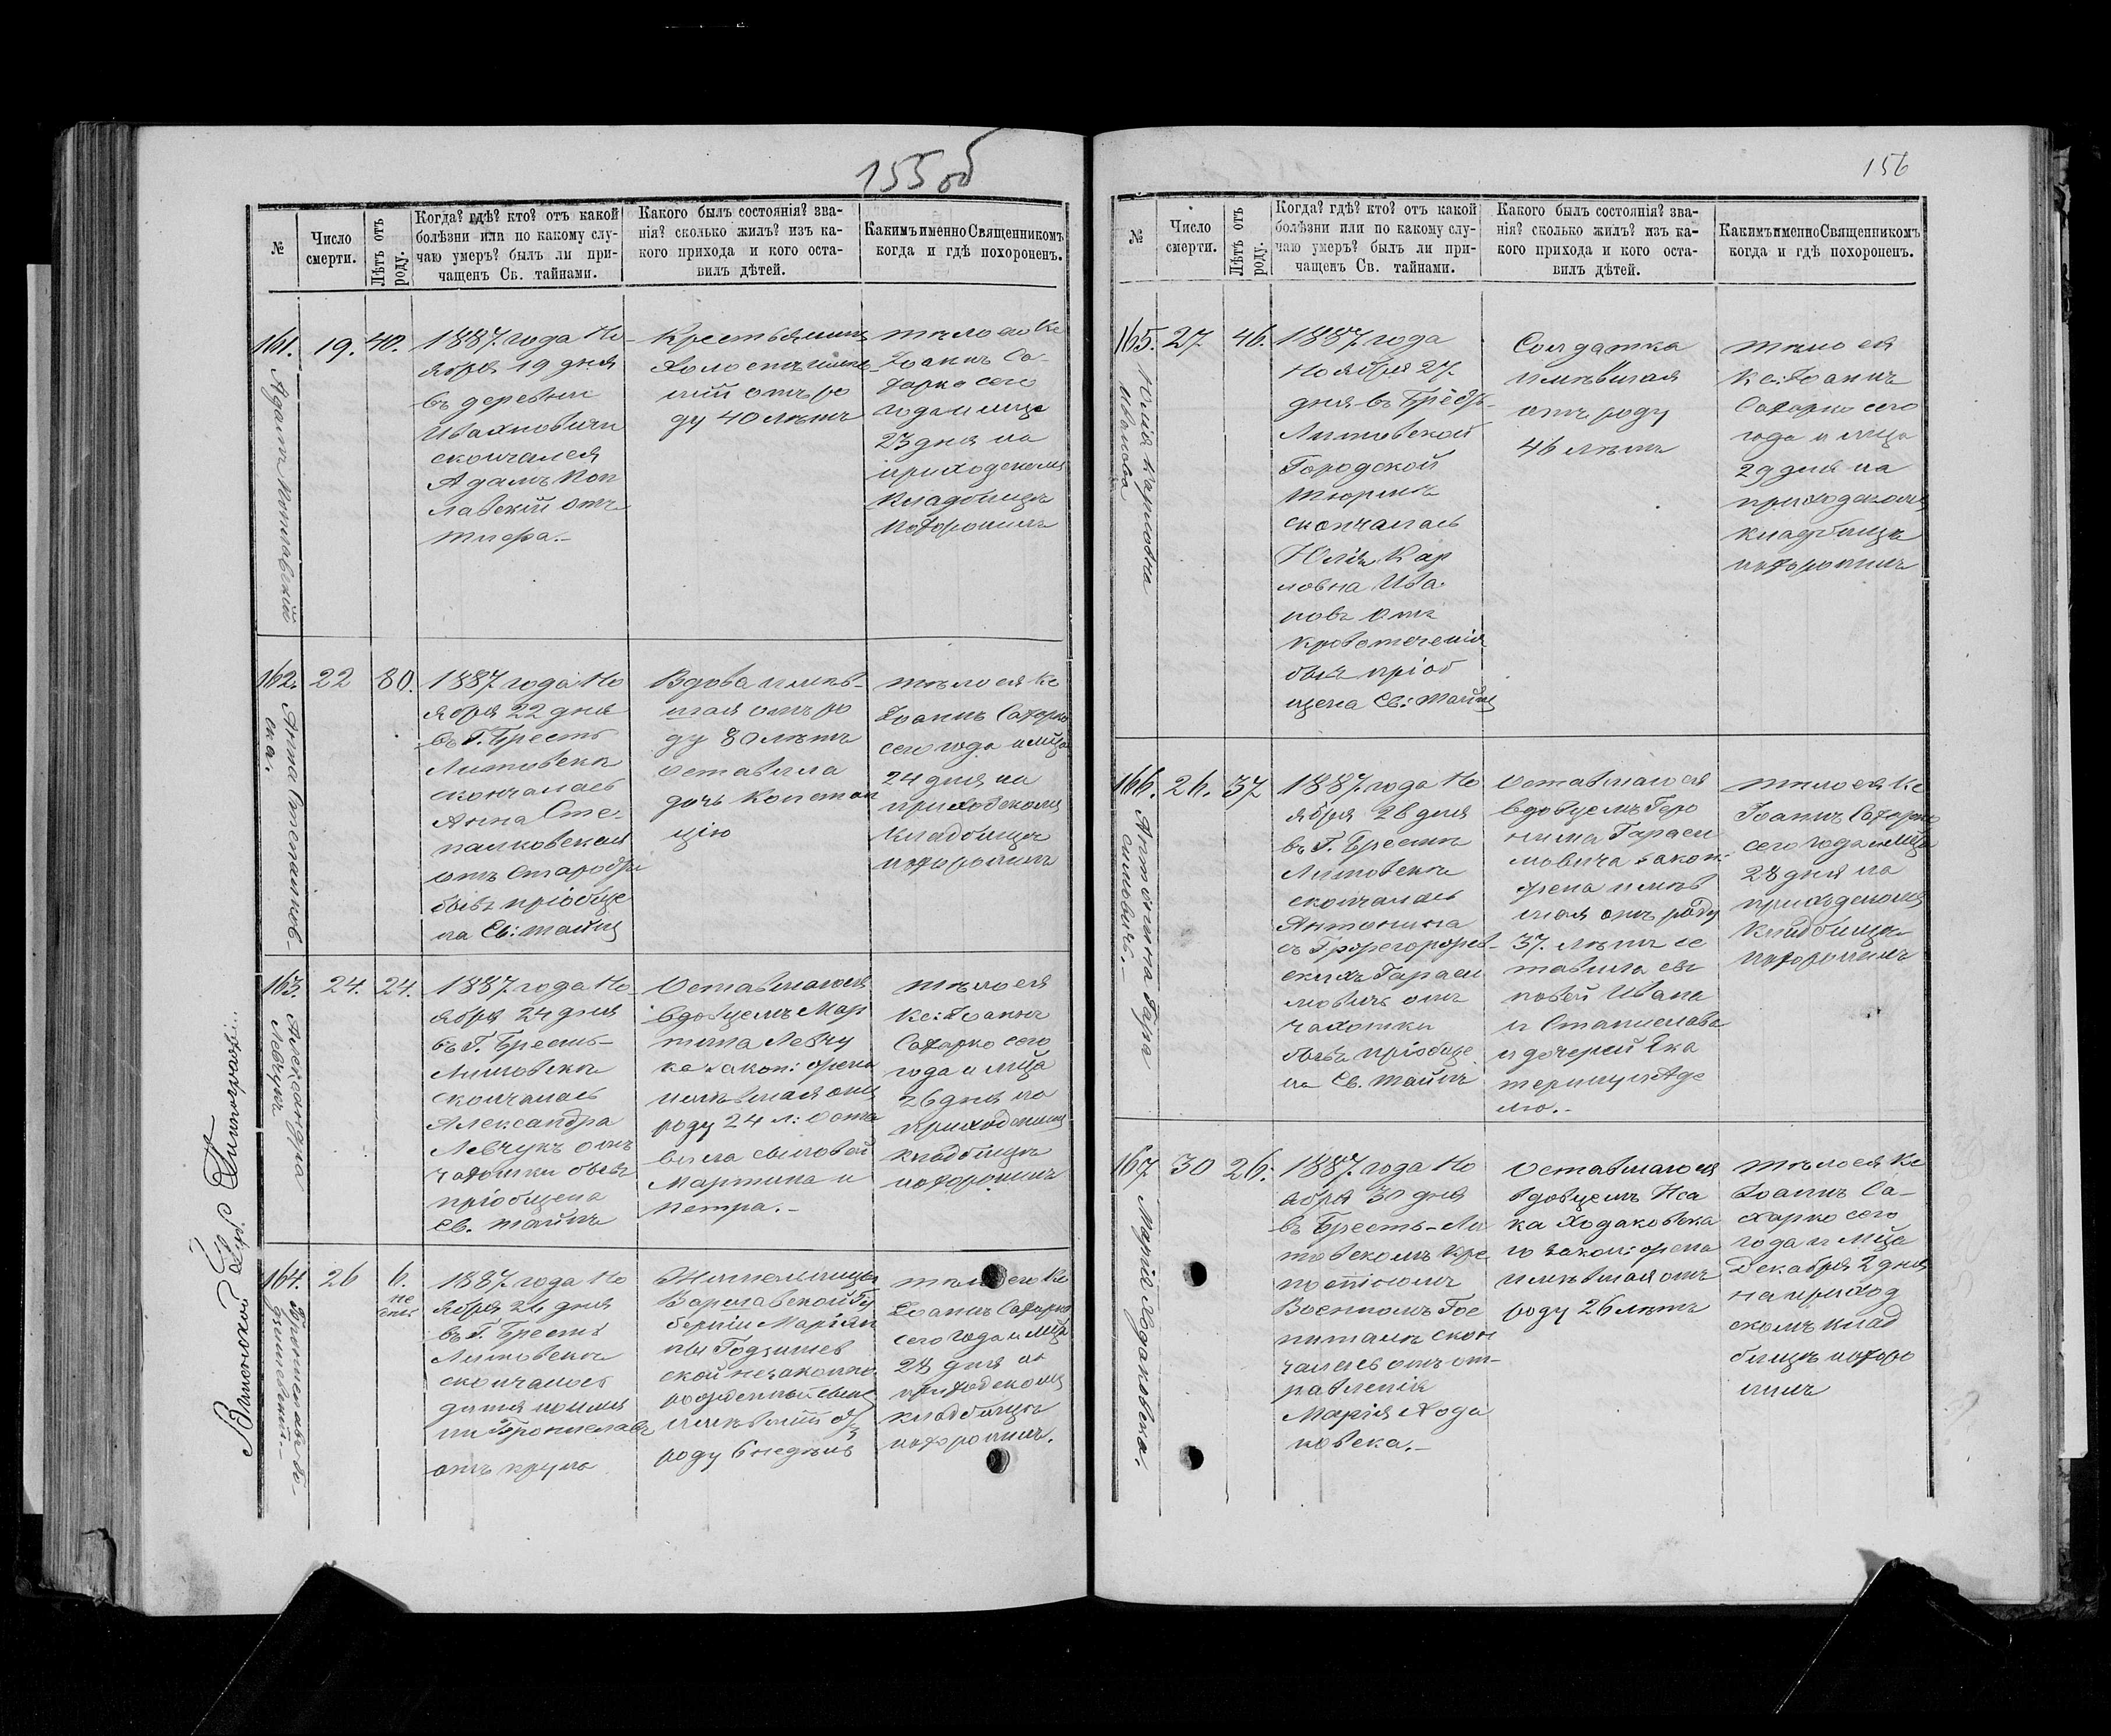 155 об
№
Число смерти.
Лѣтъ отъ роду.
Когда? гдѣ? кто? отъ какой
болѣзни или по какому слу-
чаю умеръ? былъ ли при-
чащенъ Св. тайнами.
Какого былъ состоянія? зва-
нія? сколько жилъ? изъ ка-
кого прихода и кого оста-
вилъ дѣтей.
Какимъ именно Священникомъ
когда и гдѣ похороненъ.
161.
Адамъ Коплавскій
19.
40.
1887 года Но-
ября 19 дня
въ деревни
Ивахновичи
скончался
Адамъ Коп
лавскій отъ
тифа.-
Крестьянинъ
Холостъ имѣв-
шій отъ ро
ду 40 лѣтъ
тѣло его Кс
Іоаннъ Са-
харко сего
года и мца
23 дня на
приходскомъ
Кладбищѣ
похоронилъ
162.
Анна Степанков-
ска.
22
80.
1887 года Но
ября 22 дня
въ Г. Брестъ
Литовскѣ
скончалась
Анна Сте-
панковская
отъ старости
бывъ пріобще
на Св: тайнъ
Вдова имѣв-
шая отъ ро
ду 80 лѣтъ
оставила
дочь Констан
цію
тѣло ея Кс
Іоаннъ Сахарко
сего года и мца
24 дня на
приходскомъ
Кладбищѣ
похоронилъ
163.
Александра
Левчукъ
24.
24.
1887 года Но
ября 24 дня
въ Г. Брестъ-
Литовскѣ
скончалась
Александра
Левчукъ отъ
чахотки бывъ
пріобщена
Св. тайнъ
Оставшагося
вдовцемъ Мар
тина Левчу
ка закон: жена
имѣвшая отъ
роду 24 л: оста
вила сыновей
Мартина и
Петра.-
тѣло ея
Кс: Іоаннъ
Сахарко сего
года и мца
26 дня на
приходскомъ
кладбищѣ
похоронилъ
164.
Брониславъ Го-
дзишевскій.-
26
6.
не
дѣль
1887 года Но
ября 26 дня
въ Г. Брестъ
Литовскѣ
скончалось
дитя по име
ни Брониславъ
отъ крупа
Жительницы
Варшавской Гу
берніи Маріан
ны Годзишев
ской незаконно
рожденный сынъ
имѣвшій отъ
роду 6 недѣль
тѣло его Кс
Іоаннъ Сахарко
сего года и мца
28 дня на
приходскомъ
кладбищѣ
похоронилъ.
156
№
Число
смерти.
Лѣтъ отъ
роду.
Когда? гдѣ? кто? отъ какой
болѣзни или по какому слу-
чаю умеръ? былъ ли при-
чащенъ Св. тайнами.
Какого былъ состоянія? зва-
нія? сколько жилъ? изъ ка-
кого прихода и кого оста-
вилъ дѣтей.
Какимъ именно Священникомъ
когда и гдѣ похороненъ.
165.
Юлія Карловна
Иванова
27.
46.
1887 года
Ноября 27
дня въ Брестъ-
Литовской
Городской
тюрмѣ
скончалась
Юлія Кар
ловна Ива-
новъ отъ
кровотеченія
бывъ пріоб
щена Св: тайнъ
Солдатка
имѣвшая
отъ роду
46 лѣтъ
тѣло ея
Кс: Іоаннъ
Сахарко сего
года и мца
29 дня на
приходскомъ
кладбищѣ
похоронилъ
166.
Антонина Гара
симовичъ.-
26.
37
1887 года Но
ября 26 дня
въ Г. Брестъ
Литовскѣ
скончалась
Антонина
скихъ Гараси
мовичъ отъ
чахотки
бывъ пріобще
на Св. тайнъ
Оставшагося
вдовцемъ Геро
нима Гараси
мовича закон:
жена имѣв
шая отъ роду
37. лѣтъ ос
тавила сы
новей Ивана
и Станислава
и дочерей Ека
терину и Аде
лю.-
тѣло ея Кс
Іоаннъ Сахарко
сего года и мца
28 дня на
приходскомъ
Кладбищѣ
похоронилъ
167.
Марія Ходаковска.
30
26.
1887 года Но
ября 30 дня
въ Брестъ-Ли
товскомъ Кре
постномъ
Военномъ Гос
питалѣ скон
чалась отъ от-
равленія
Марія Хода
ковска.-
Оставшагося
вдовцемъ Иса
ка Ходаковска
го закон: жена
имѣвшая отъ
роду 26 лѣтъ
тѣло ея Кс
Іоаннъ Са-
харко сего
года и мца
Декабря 2 дня
на приход
скомъ клад
бищѣ похоро
нилъ